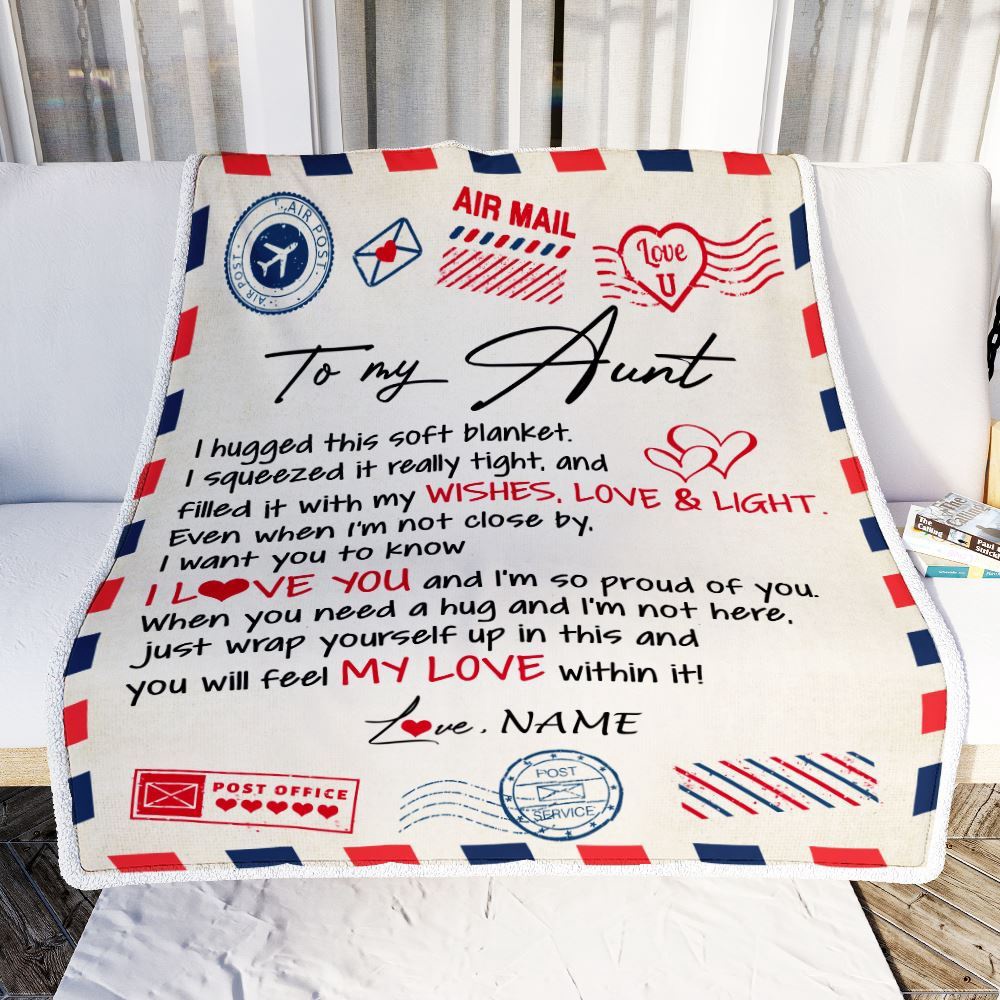 AIR POST
AIR POST
AIR MAIL
Love
U
To my Aunt
I hugged this soft blanket.
I squeezed it really tight, and
filled it with my WISHES, LOVE & LIGHT.
Even when I'm not close by,
I want you to know
I LOVE YOU and I'm so proud of you.
When you need a hug and I'm not here,
just wrap yourself up in this and
you will feel MY LOVE within it!
Love, NAME
POST OFFICE
POST
SERVICE
The
Calling
Paul